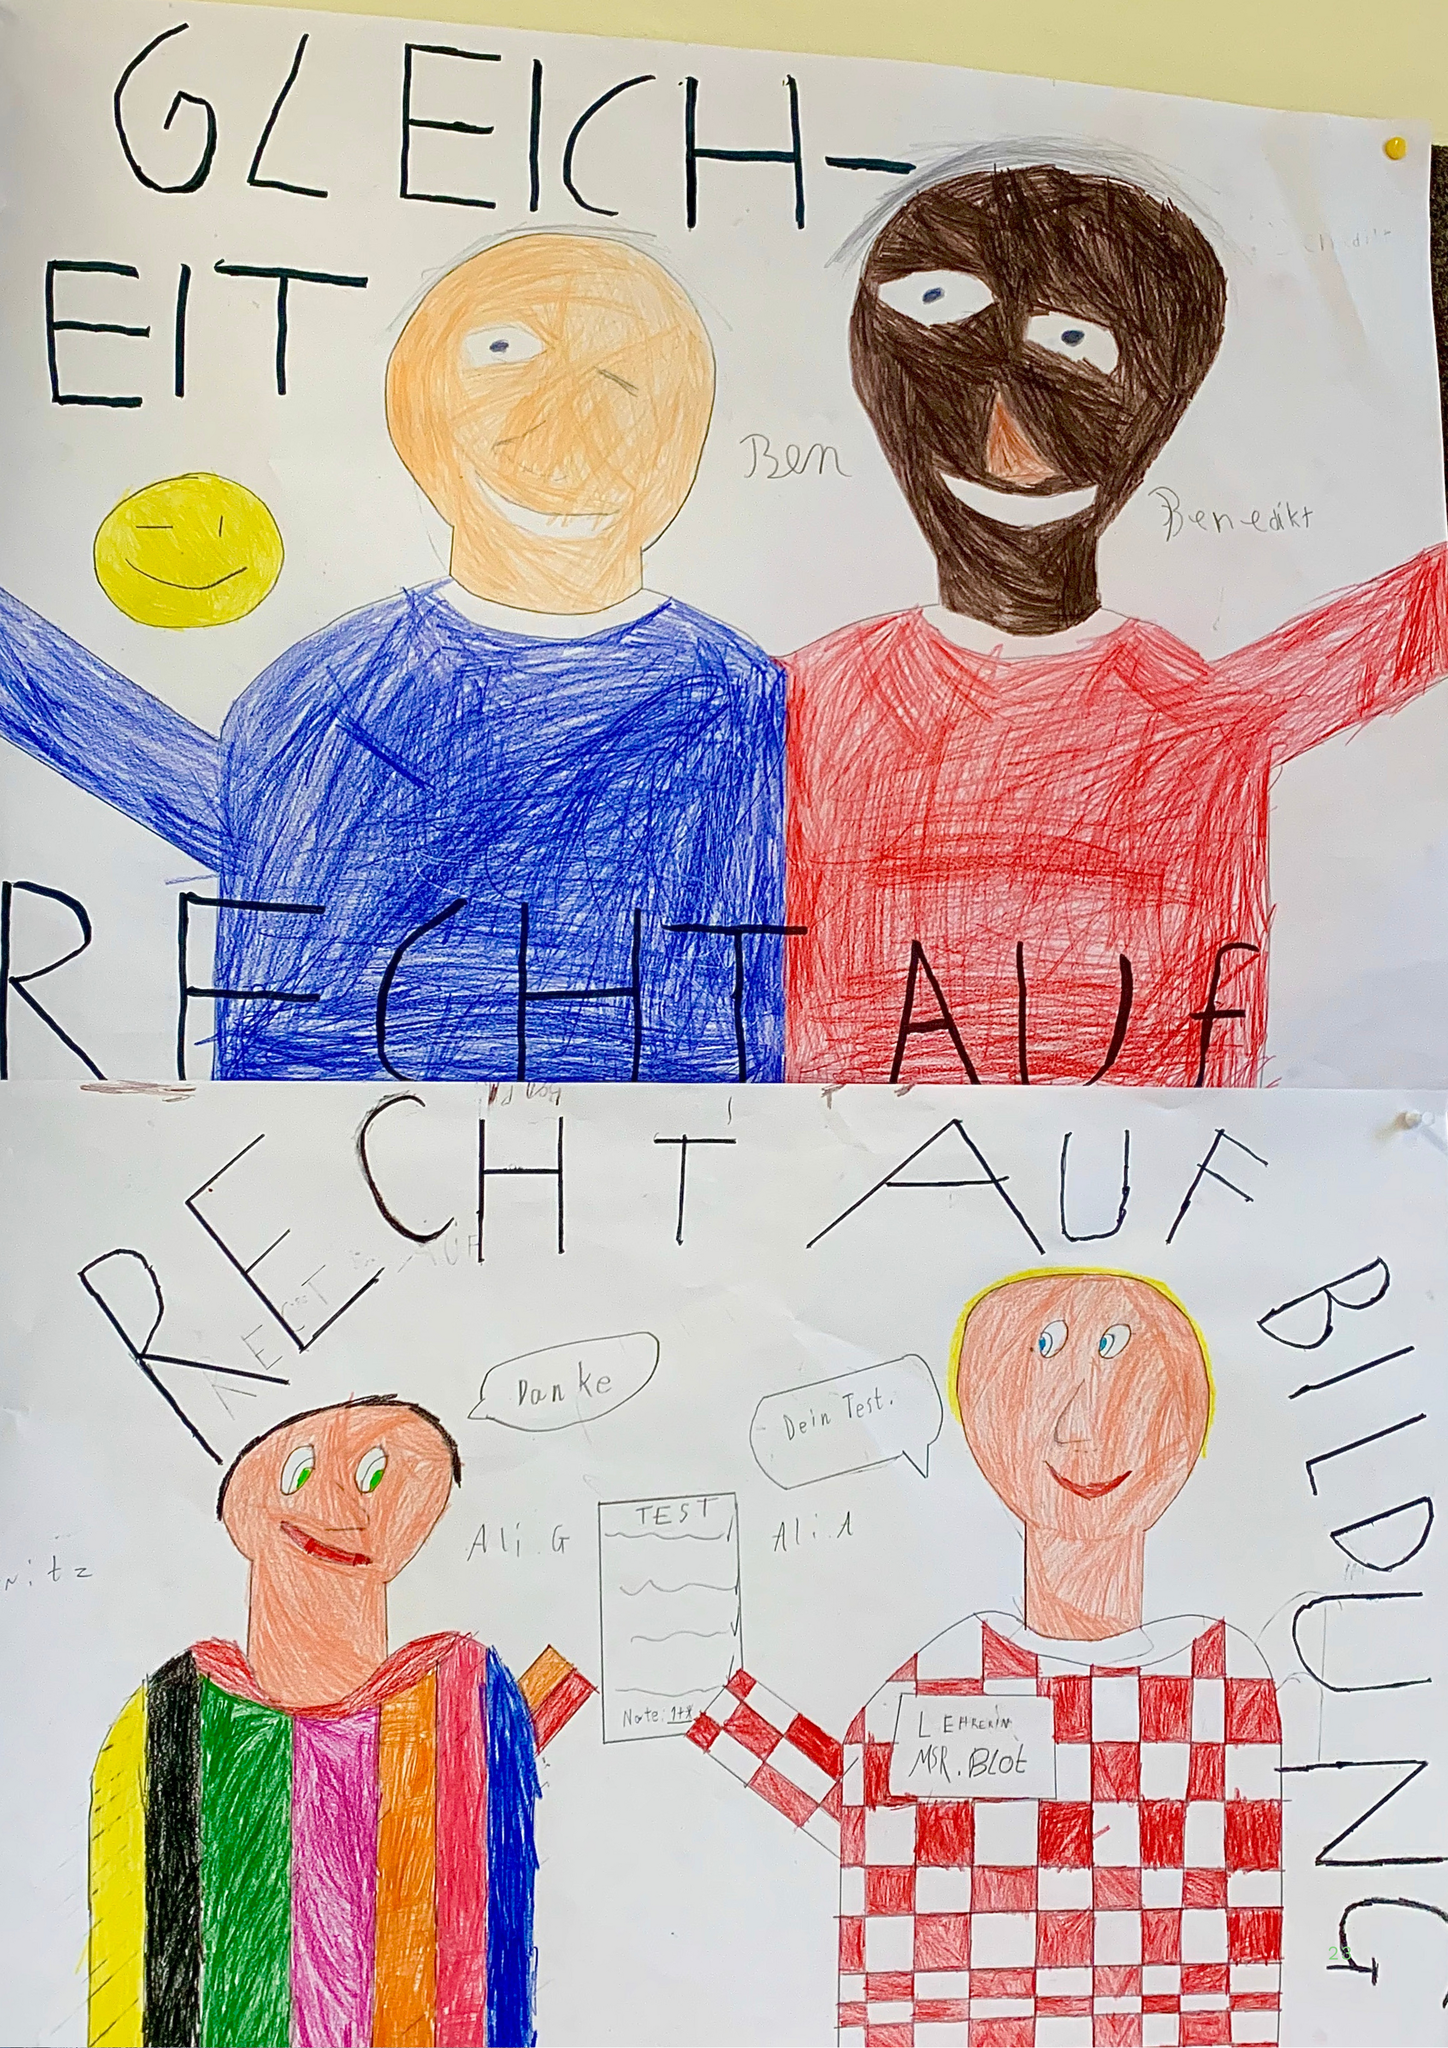 GLEICH-
EIT
Ben
Benedikt
RECHT AUf
RECHT AUF
BILDUNG
Danke
Dein Test.
Ali.G
TEST
Ali.A
Note: 1+*
LEHRERIN
MSR. BLOT
28